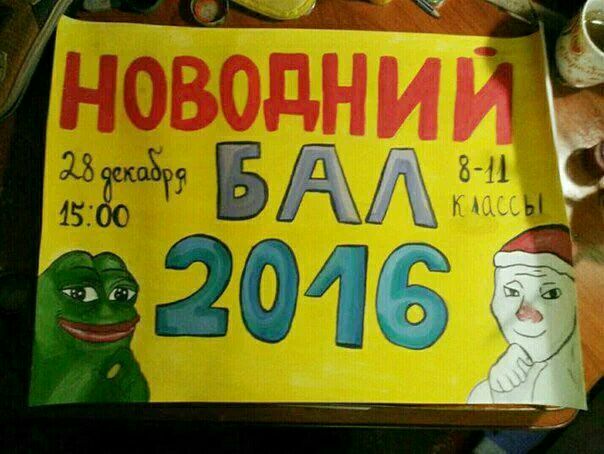 НОВОДНИЙ
28 декабря
15:00
БАЛ
8-11
классы
2016